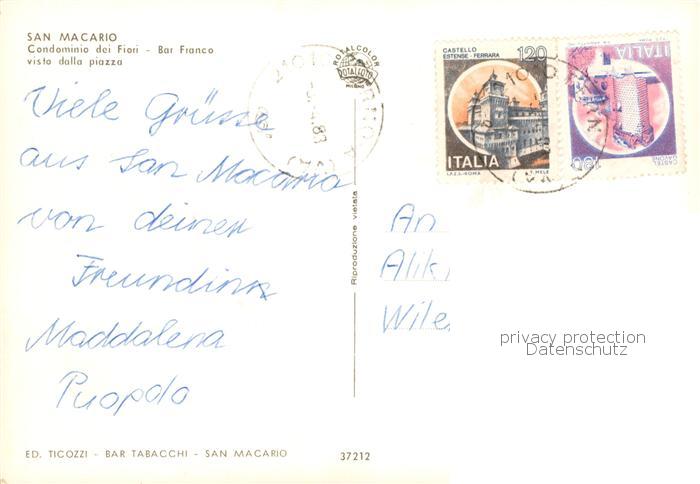 SAN MACARIO
Condominio dei Fiori - Bar Franco
visto dalla piazza
Viele Grüsse
aus San Macario
von deiner
Freundinn
Maddalena
Puopolo
ED. TICOZZI - BAR TABACCHI - SAN MACARIO
37212
Riproduzione vietata
ROTALCOLOR
ROTALFOTO
MILANO
CASTELLO
ESTENSE - FERRARA
120
ITALIA
I.P.Z.S. - ROMA
T. MELE
ITALIA
100
An
Alik
Wile
privacy protection
Datenschutz